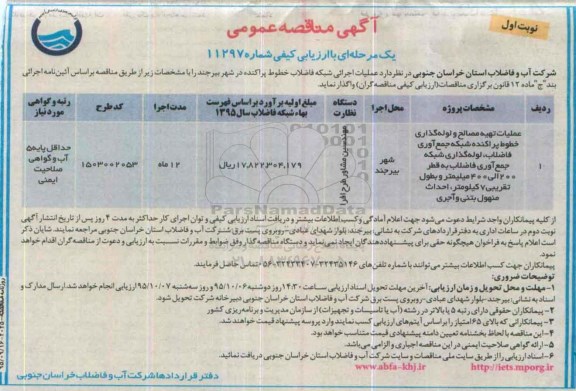 نوبت اول
آگهی مناقصه عمومی
یک مرحله‌ای با ارزیابی کیفی شماره ۱۱۲۹۷
شرکت آب و فاضلاب استان خراسان جنوبی در نظر دارد عملیات اجرائی شبکه فاضلاب خطوط پراکنده در شهر بیرجند را با مشخصات زیر از طریق مناقصه براساس آئین‌نامه اجرائی
بند "ج" ماده ۱۲ قانون برگزاری مناقصات (ارزیابی کیفی مناقصه‌گران) واگذار نماید.
ردیف مشخصات پروژه محل اجرا دستگاه نظارت مبلغ اولیه برآورد براساس فهرست بهاء شبکه فاضلاب سال ۱۳۹۵ مدت اجرا کد طرح رتبه و گواهی مورد نیاز
۱ عملیات تهیه مصالح و لوله‌گذاری خطوط پراکنده شبکه جمع‌آوری فاضلاب، لوله‌گذاری شبکه جمع‌آوری فاضلاب به قطر ۲۰۰ الی ۴۰۰ میلیمتر و بطول تقریبی ۷ کیلومتر، احداث منهول بتنی و آجری
شهر بیرجند
مهندسین مشاور طرح افرا
۱۷,۸۲۲,۳۰۴,۱۷۹ ریال
۱۲ ماه
۱۵۰۳۰۰۲۰۵۳
حداقل پایه ۵ آب و گواهی صلاحیت ایمنی
از کلیه پیمانکاران واجد شرایط دعوت می‌شود جهت اعلام آمادگی و کسب اطلاعات بیشتر و دریافت اسناد ارزیابی کیفی و توان اجرای کار حداکثر به مدت ۴ روز پس از تاریخ انتشار آگهی
نوبت دوم در ساعات اداری به دفتر قراردادهای شرکت به نشانی: بیرجند، بلوار شهدای عبادی، روبروی پست برق شرکت آب و فاضلاب استان خراسان جنوبی مراجعه نمایند. شایان ذکر
است اعلام پاسخ به فراخوان هیچگونه حقی برای پیشنهاددهندگان ایجاد نمی‌نماید و دستگاه مناقصه گذار وفق ضوابط و مقررات نسبت به ارزیابی و دعوت از مناقصه‌گران اقدام خواهد
نمود.
پیمانکاران جهت کسب اطلاعات بیشتر می‌توانند با شماره تلفن‌های تماس حاصل فرمایند.
توضیحات ضروری:
۱- مهلت و محل تحویل و زمان ارزیابی: آخرین مهلت تحویل اسناد ارزیابی ساعت ۱۴:۳۰ روز دوشنبه ۹۵/۱۰/۰۶ و روز سه‌شنبه ۹۵/۱۰/۰۷ ارزیابی انجام خواهد شد. ارسال مدارک و
اسناد به نشانی: بیرجند- بلوار شهدای عبادی- روبروی پست برق شرکت آب و فاضلاب استان خراسان جنوبی دبیرخانه شرکت تحویل شود.
۲- پیمانکاران حقوقی دارای رتبه ۵ یا بالاتر در رشته (آب یا تاسیسات و تجهیزات) از سازمان مدیریت و برنامه‌ریزی کشور
۳- پیمانکارانی که بالای ۶۵ امتیاز را براساس آیتم‌های ارزیابی کسب نمایند وارد پروسه پیشنهاد قیمت خواهند شد.
۴- این مناقصه با لحاظ بخشنامه تعیین دامنه پیشنهادی قیمت متناسب خواهد بود.
۵- ارائه گواهی صلاحیت ایمنی در این مناقصه اجباری و الزامی می‌باشد.
۶- اسناد ارزیابی را از طریق سایت ملی مناقصات و سایت شرکت آب و فاضلاب استان خراسان جنوبی دریافت نمائید.
http://iets.mporg.ir
www.abfa-khj.ir
دفتر قراردادها شرکت آب و فاضلاب خراسان جنوبی
ParsNamadData